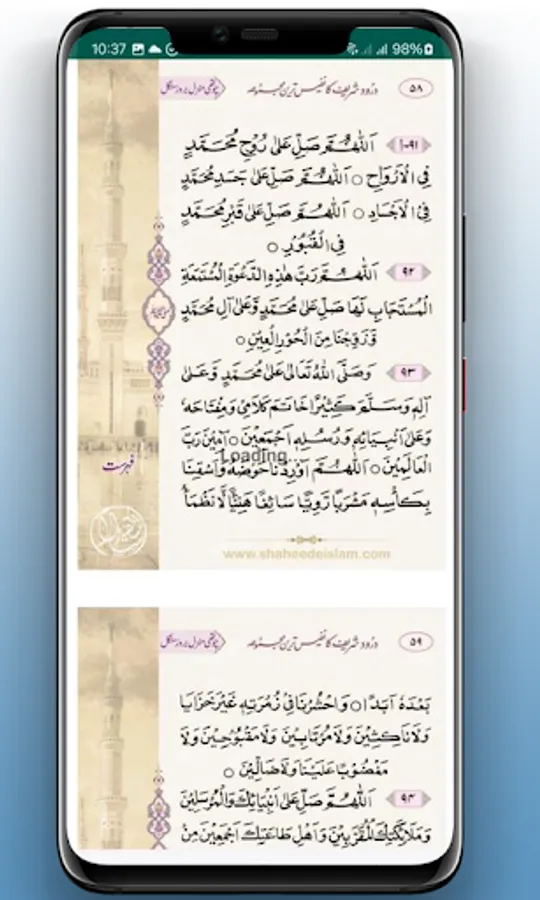 10:37
98%
۵۸
درود شریف کا نفیس ترین مجموعہ
چوتھی منزل بروز منگل
۹۱ اَللّٰهُمَّ صَلِّ عَلٰى رُوْحِ مُحَمَّدٍ
فِى الْاَرْوَاحِ ○ اَللّٰهُمَّ صَلِّ عَلٰى جَسَدِ مُحَمَّدٍ
فِى الْاَجْسَادِ ○ اَللّٰهُمَّ صَلِّ عَلٰى قَبْرِ مُحَمَّدٍ
فِى الْقُبُوْرِ ○
۹۲ اَللّٰهُمَّ رَبَّ هٰذِهِ الدَّعْوَةِ الْمُسْتَمَعَةِ
الْمُسْتَجَابِ لَهَا صَلِّ عَلٰى مُحَمَّدٍ وَّعَلٰى اٰلِ مُحَمَّدٍ
وَّزَوِّجْنَا مِنَ الْحُوْرِ الْعِيْنِ ○
۹۳ وَصَلَّى اللّٰهُ تَعَالٰى عَلٰى مُحَمَّدٍ وَّعَلٰى
اٰلِهٖ وَسَلَّمَ كَثِيْرًا خَاتَمَ كَلَامِىْ وَمِفْتَاحَهٗ
وَعَلٰى اَنْبِيَائِهٖ وَرُسُلِهٖ اَجْمَعِيْنَ ○ اٰمِيْنَ رَبَّ
Loading..
الْعَالَمِيْنَ ○ اَللّٰهُمَّ اَوْرِدْنَا حَوْضَهٗ وَاَسْقِنَا
بِكَاْسِهٖ مَشْرَبًا رَّوِيًّا سَائِغًا هَنِيْئًا لَّا نَظْمَأُ
فہرست
www.shaheedeislam.com
۵۹
درود شریف کا نفیس ترین مجموعہ
چوتھی منزل بروز منگل
بَعْدَهٗ اَبَدًا ○ وَاحْشُرْنَا فِىْ زُمْرَتِهٖ غَيْرَ خَزَايَا
وَلَا نَاكِثِيْنَ وَلَا مُرْتَابِيْنَ وَلَا مَقْبُوْحِيْنَ وَلَا
مَغْضُوْبًا عَلَيْنَا وَلَا ضَالِّيْنَ ○
۹۴ اَللّٰهُمَّ صَلِّ عَلٰى اَنْبِيَائِكَ وَالْمُرْسَلِيْنَ
وَمَلَائِكَتِكَ الْمُقَرَّبِيْنَ وَاَهْلِ طَاعَتِكَ اَجْمَعِيْنَ مِنْ